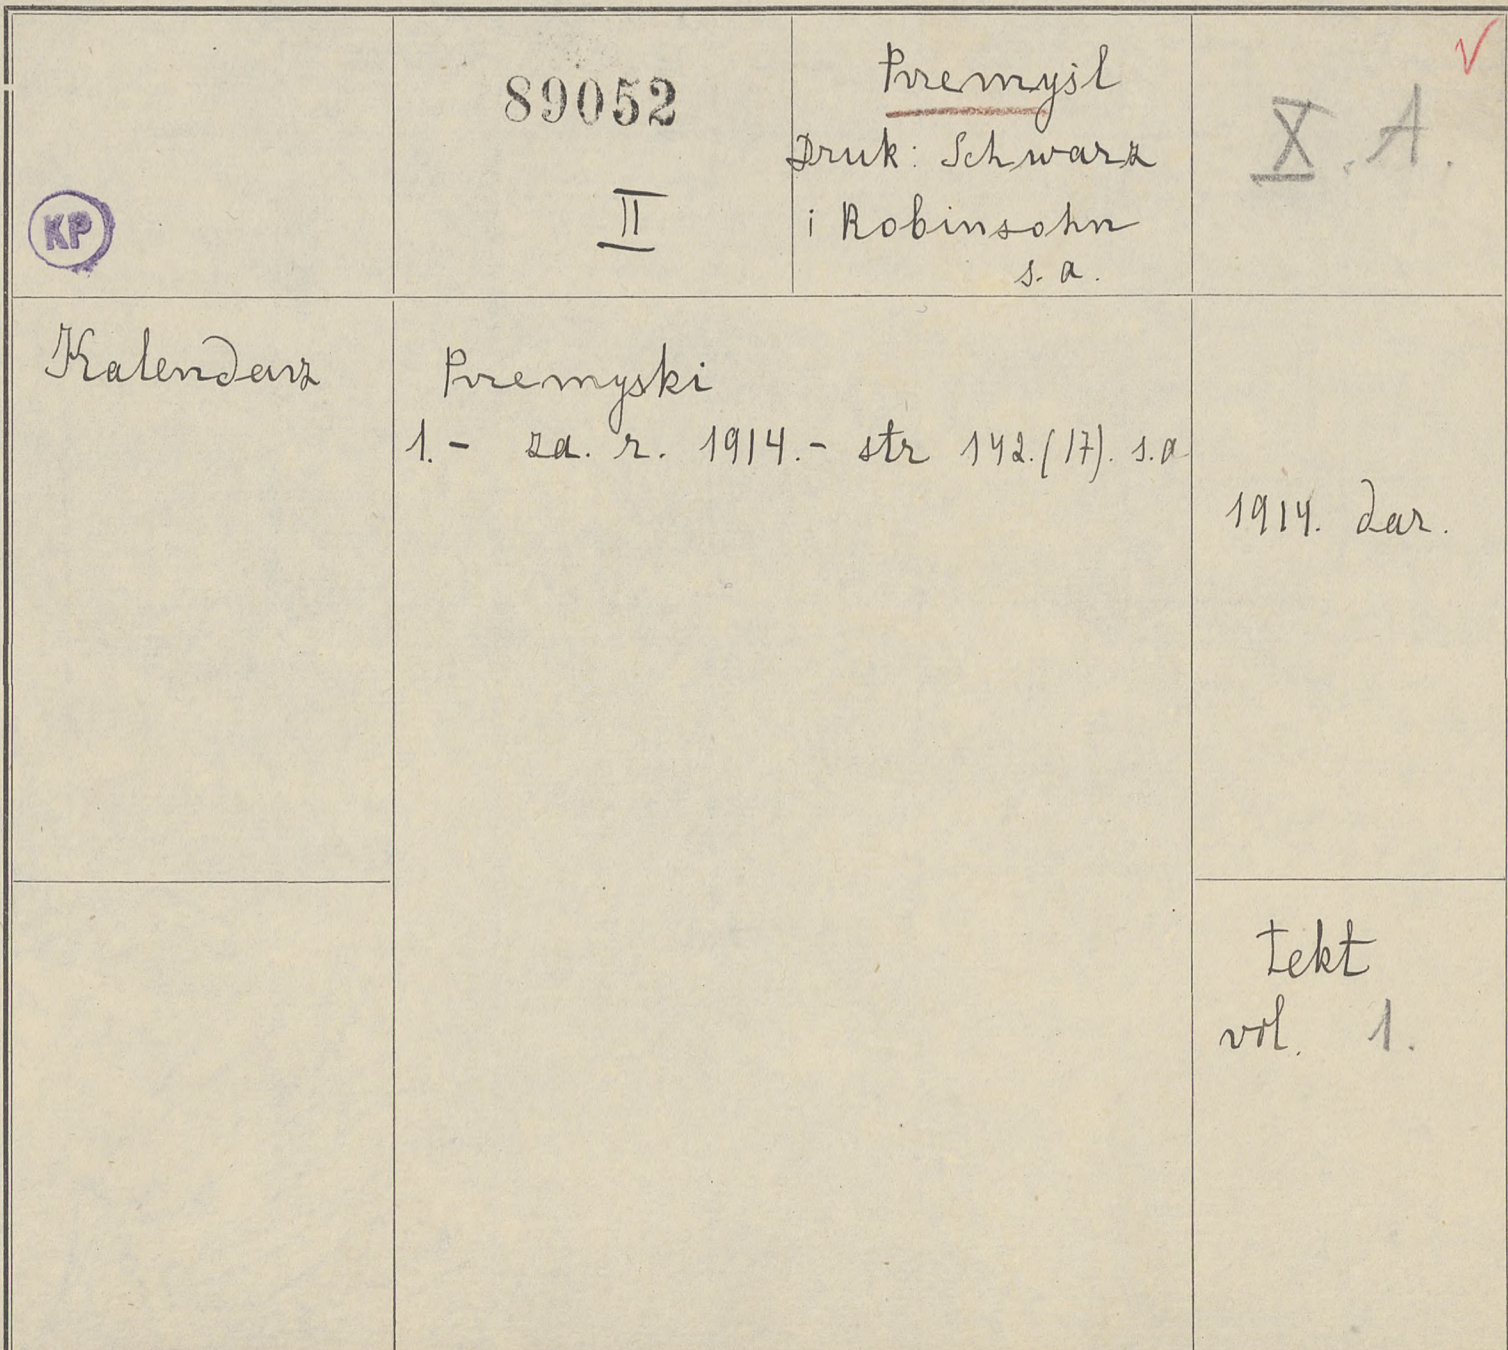 89052
II
KP
Przemyśl
Druk: Schwarz
i Robinsohn
s. a.
X. A.
Kalendarz
Przemyski
1. - za. r. 1914. - str 142. (17). s. a
1914. dar.
tekt
vol. 1.